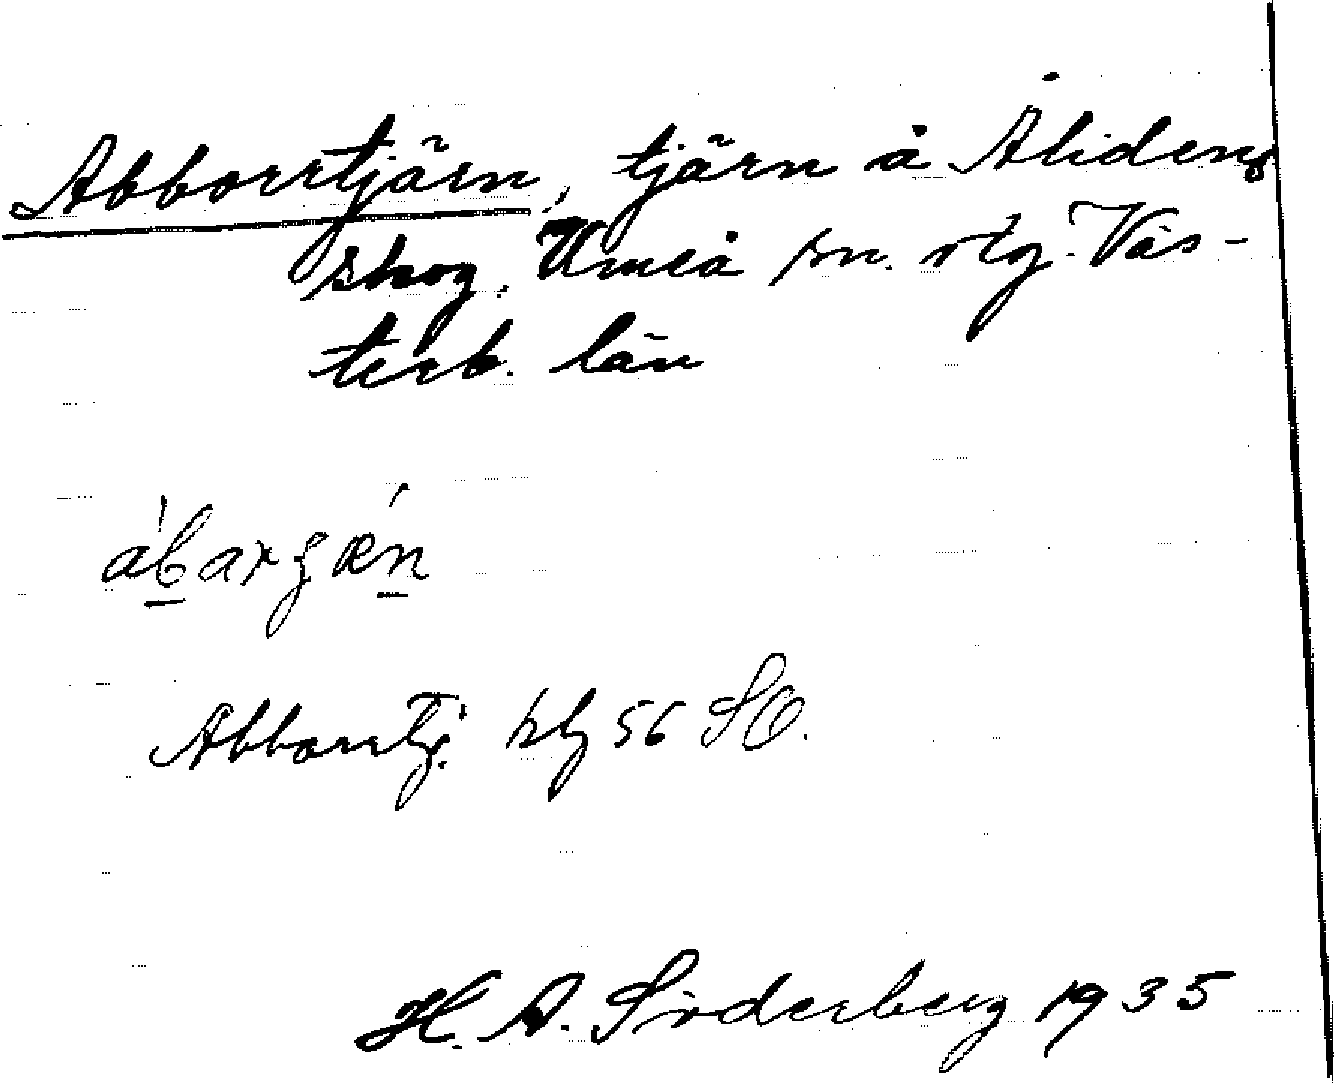 Abborrtjärn, tjärn å Ålidens
skog. Umeå sn. o lg. Väs-
terb. län
Abborrtj. blg 56 SO.
H. A. Söderberg 1935